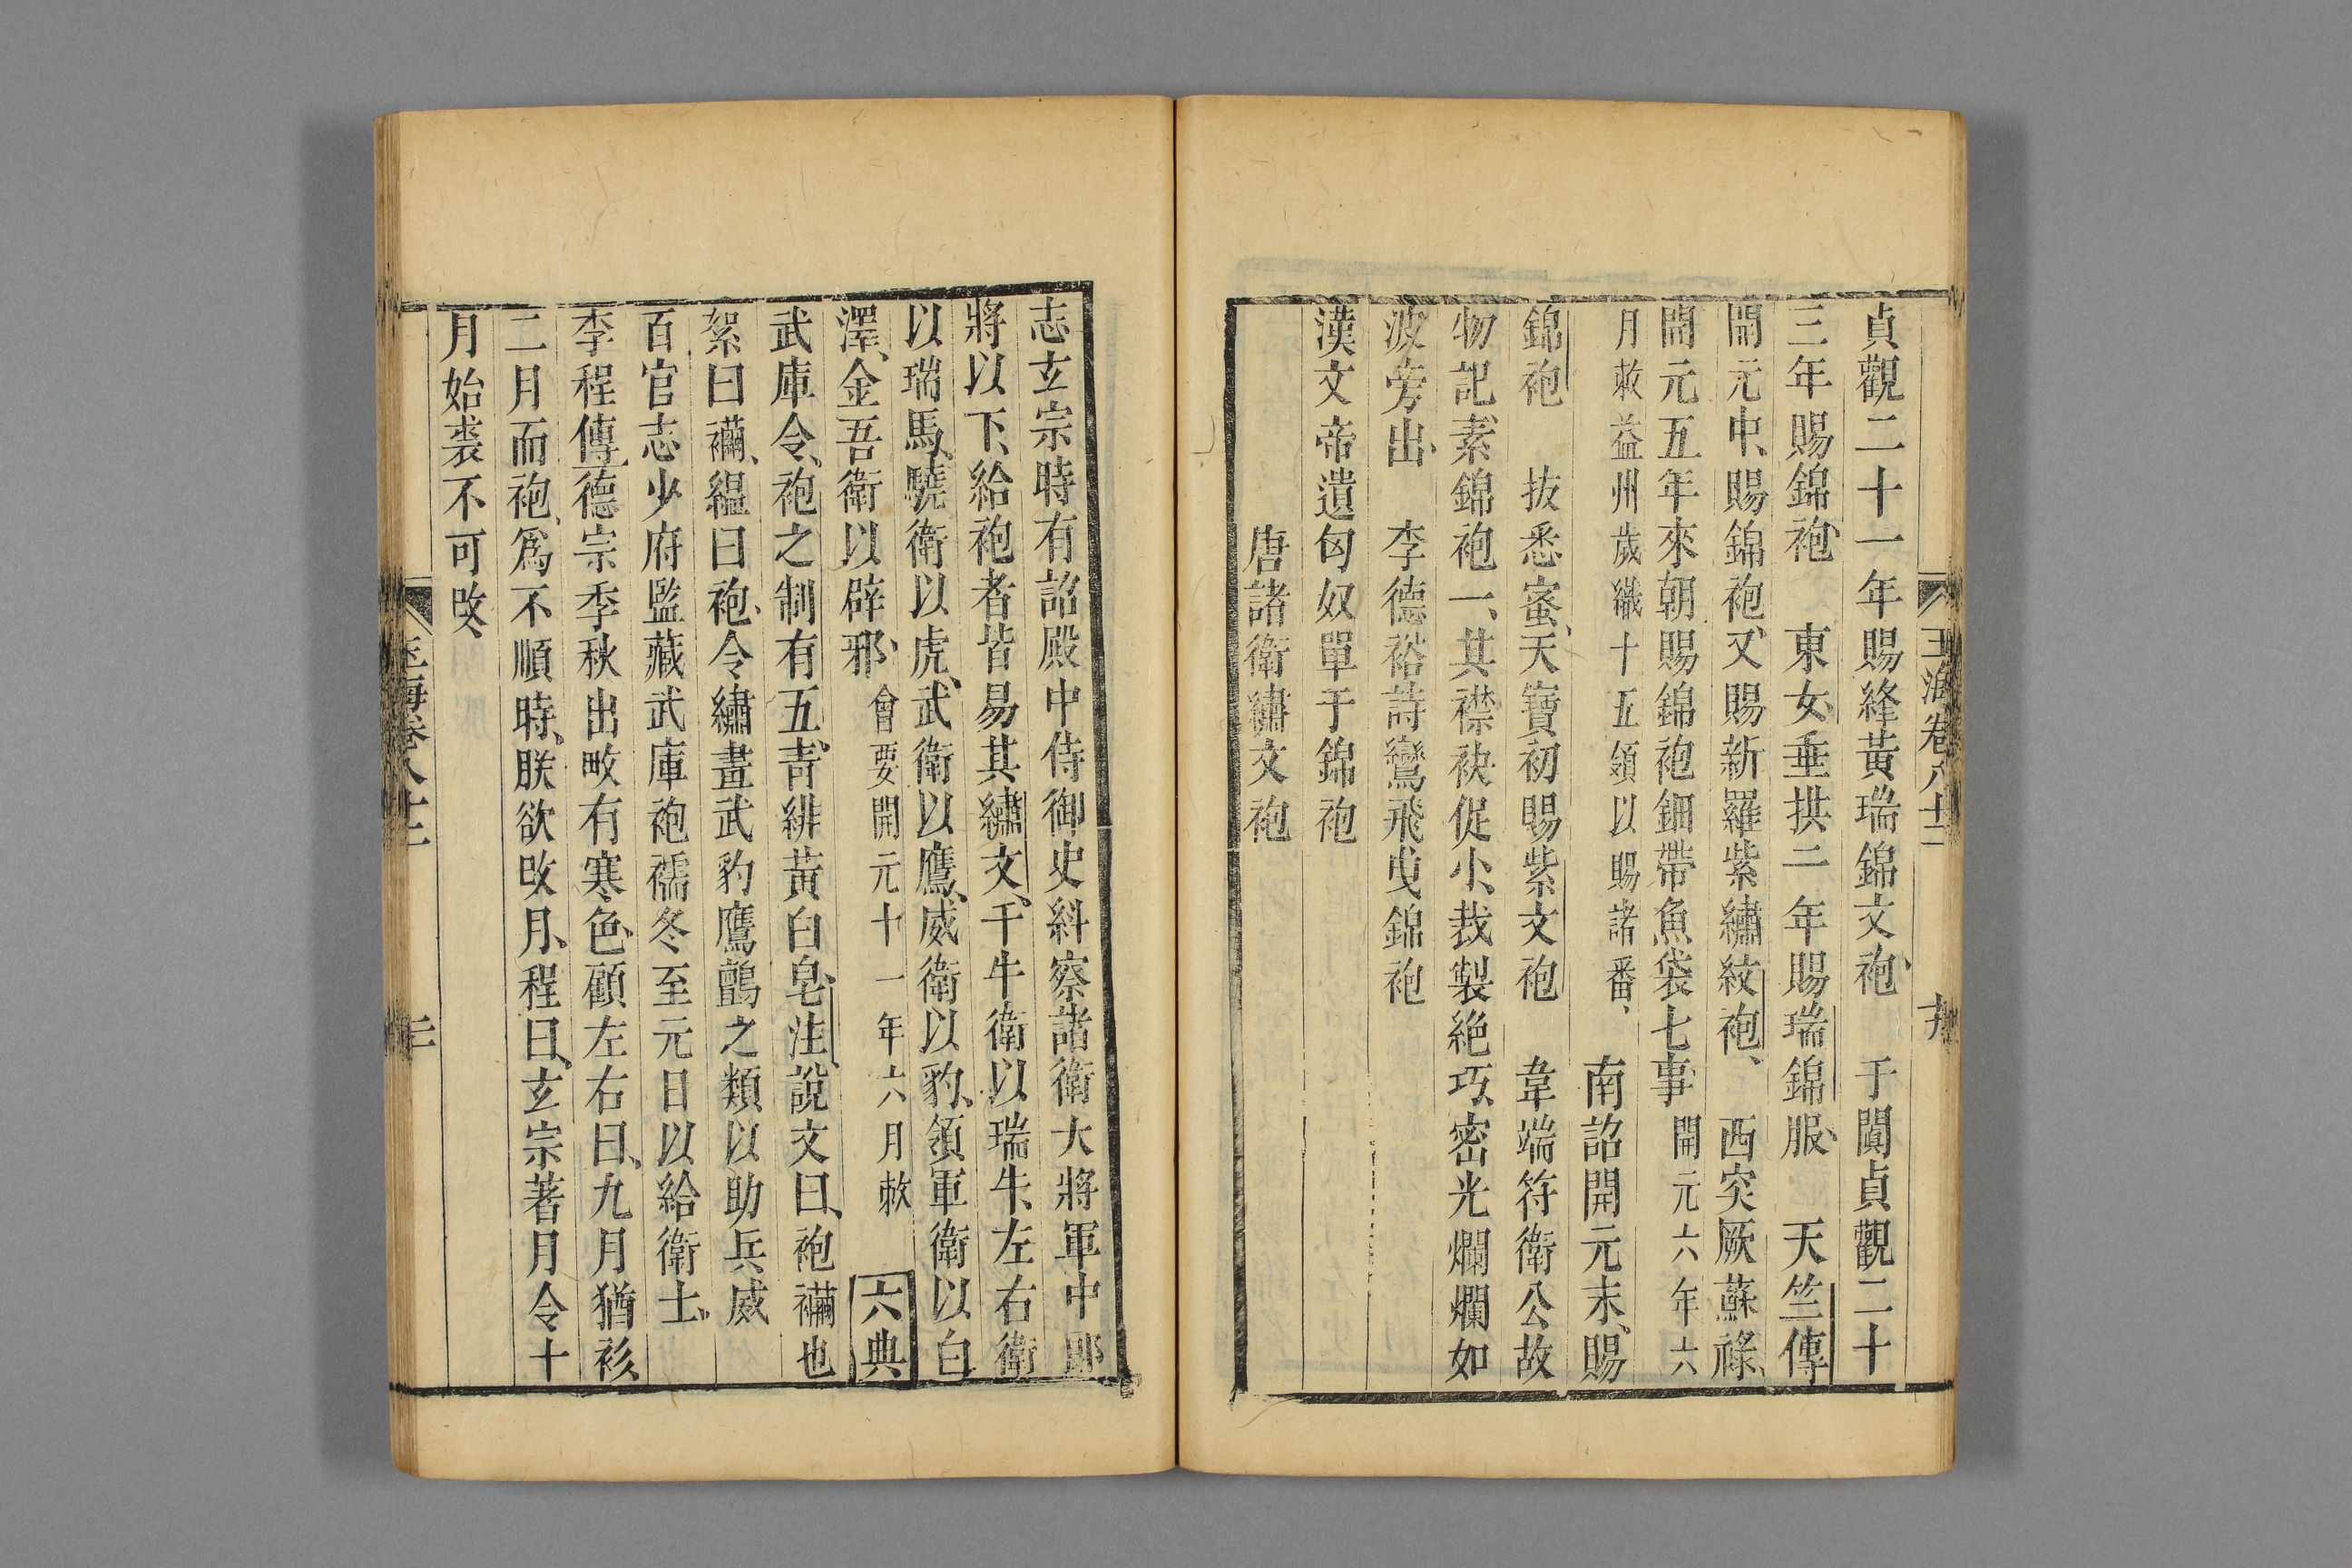 玉海卷八十二 十九
貞觀二十一年賜絳黃瑞錦文袍、 于闐貞觀二十
三年賜錦袍、 東女、垂拱二年賜瑞錦服、 天竺傳
開元中、賜錦袍、又賜新羅紫繡紋袍、 西突厥蘇祿、
開元五年來朝賜錦袍鈿帶魚袋七事 開元六年六
月敕益州歲織十五領以賜諸番、 南詔開元末、賜
錦袍 抜悉蜜、天寶初賜紫文袍 韋端符衛公故
物記、素錦袍一、其襟袂促小、裁製絶巧、密光爛爛如
波旁出、 李德裕詩鸞飛曳錦袍
漢文帝遺匈奴單于錦袍
唐諸衛繡文袍
志玄宗時有詔殿中侍御史糾察諸衛大將軍中郎
將以下、給袍者皆易其繡文、千牛衛以瑞牛、左右衛
以瑞馬、驍衛以虎、武衛以鷹、威衛以豹、領軍衛以白
澤、金吾衛以辟邪、 會要開元十一年六月敕 六典
武庫令、袍之制有五、青緋黃白皂、注、說文曰、袍襺也
絮曰襺、縕曰袍、今繡畫武豹鷹鸇之類以助兵威
百官志少府監藏武庫袍襦冬至元日以給衛士、
李程傳德宗季秋出畋有寒色、顧左右曰、九月猶衫
二月而袍、爲不順時、朕欲改月、程曰、玄宗著月令十
月始裘不可改、
玉海卷八十二 二十